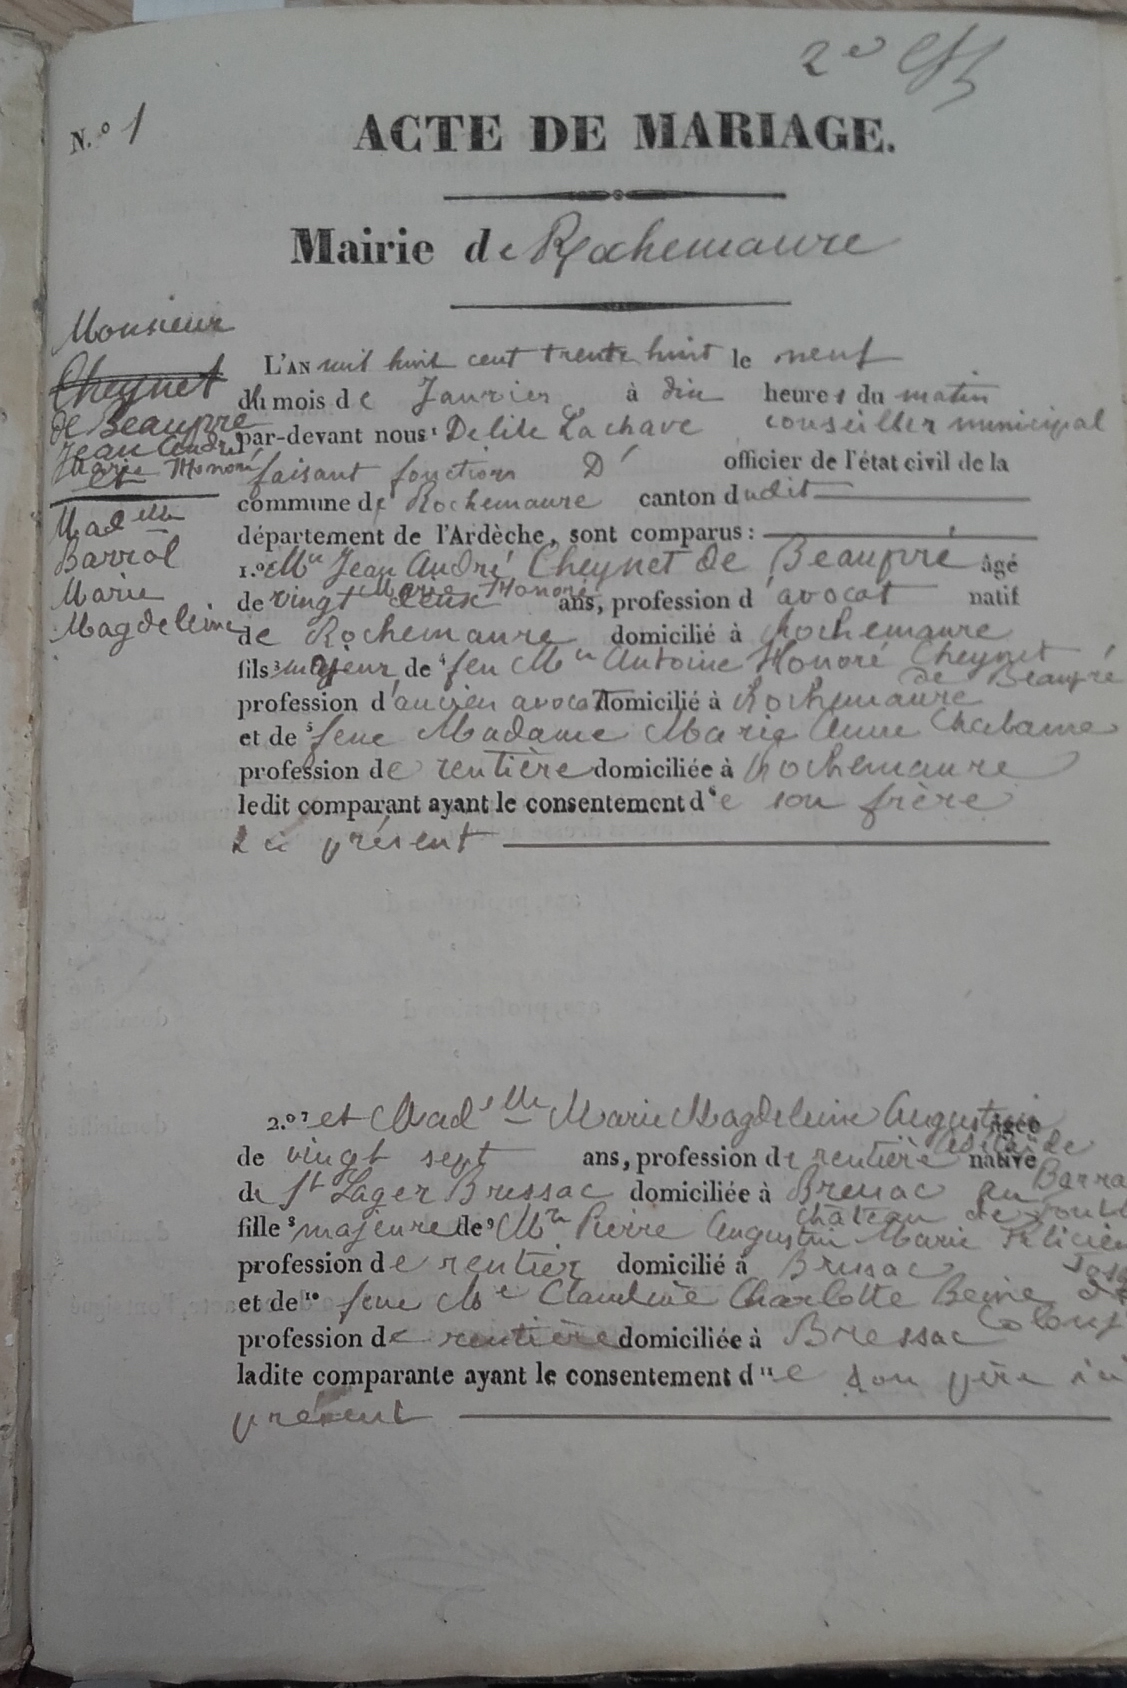 2e
N.o 1
ACTE DE MARIAGE.
Mairie de Rochemaure
Monsieur
Cheynet
de Beaupré
Jean André
Marie Honoré
et
Madelle
Barrol
Marie
Magdeleine
L'AN mil huit cent trente huit le neuf
du mois de Janvier à dix heures du matin
par-devant nous Delile Lachave conseiller municipal
faisant fonction D' officier de l'état civil de la
commune de Rochemaure canton dudit
département de l'Ardèche, sont comparus :
1.o Mr Jean André Cheynet de Beaupré âgé
Marie Honoré
de vingt deux ans, profession d'avocat natif
de Rochemaure domicilié à Rochemaure
fils 3 majeur de 4 feu Mr Antoine Honoré Cheynet
de Beaupré
profession d'ancien avocat domicilié à Rochemaure
et de 5 feue Madame Marie Anne Chabanne
profession de rentière domiciliée à Rochemaure
ledit comparant ayant le consentement d6e son frère
ici présent
2.o 7 et Madelle Marie Magdeleine Augustine âgée
Adélaïde
de vingt sept ans, profession de rentière native
Barra
de St Lager Bressac domiciliée à Bressac au
château de
fille 8 majeure de 9 Mr Pierre Augustin Marie Félicien
profession de rentier domicilié à Bressac
et de 10 feue Me Claudine Charlotte Reine de
profession de rentière domiciliée à Bressac
ladite comparante ayant le consentement d11e son père ici
présent